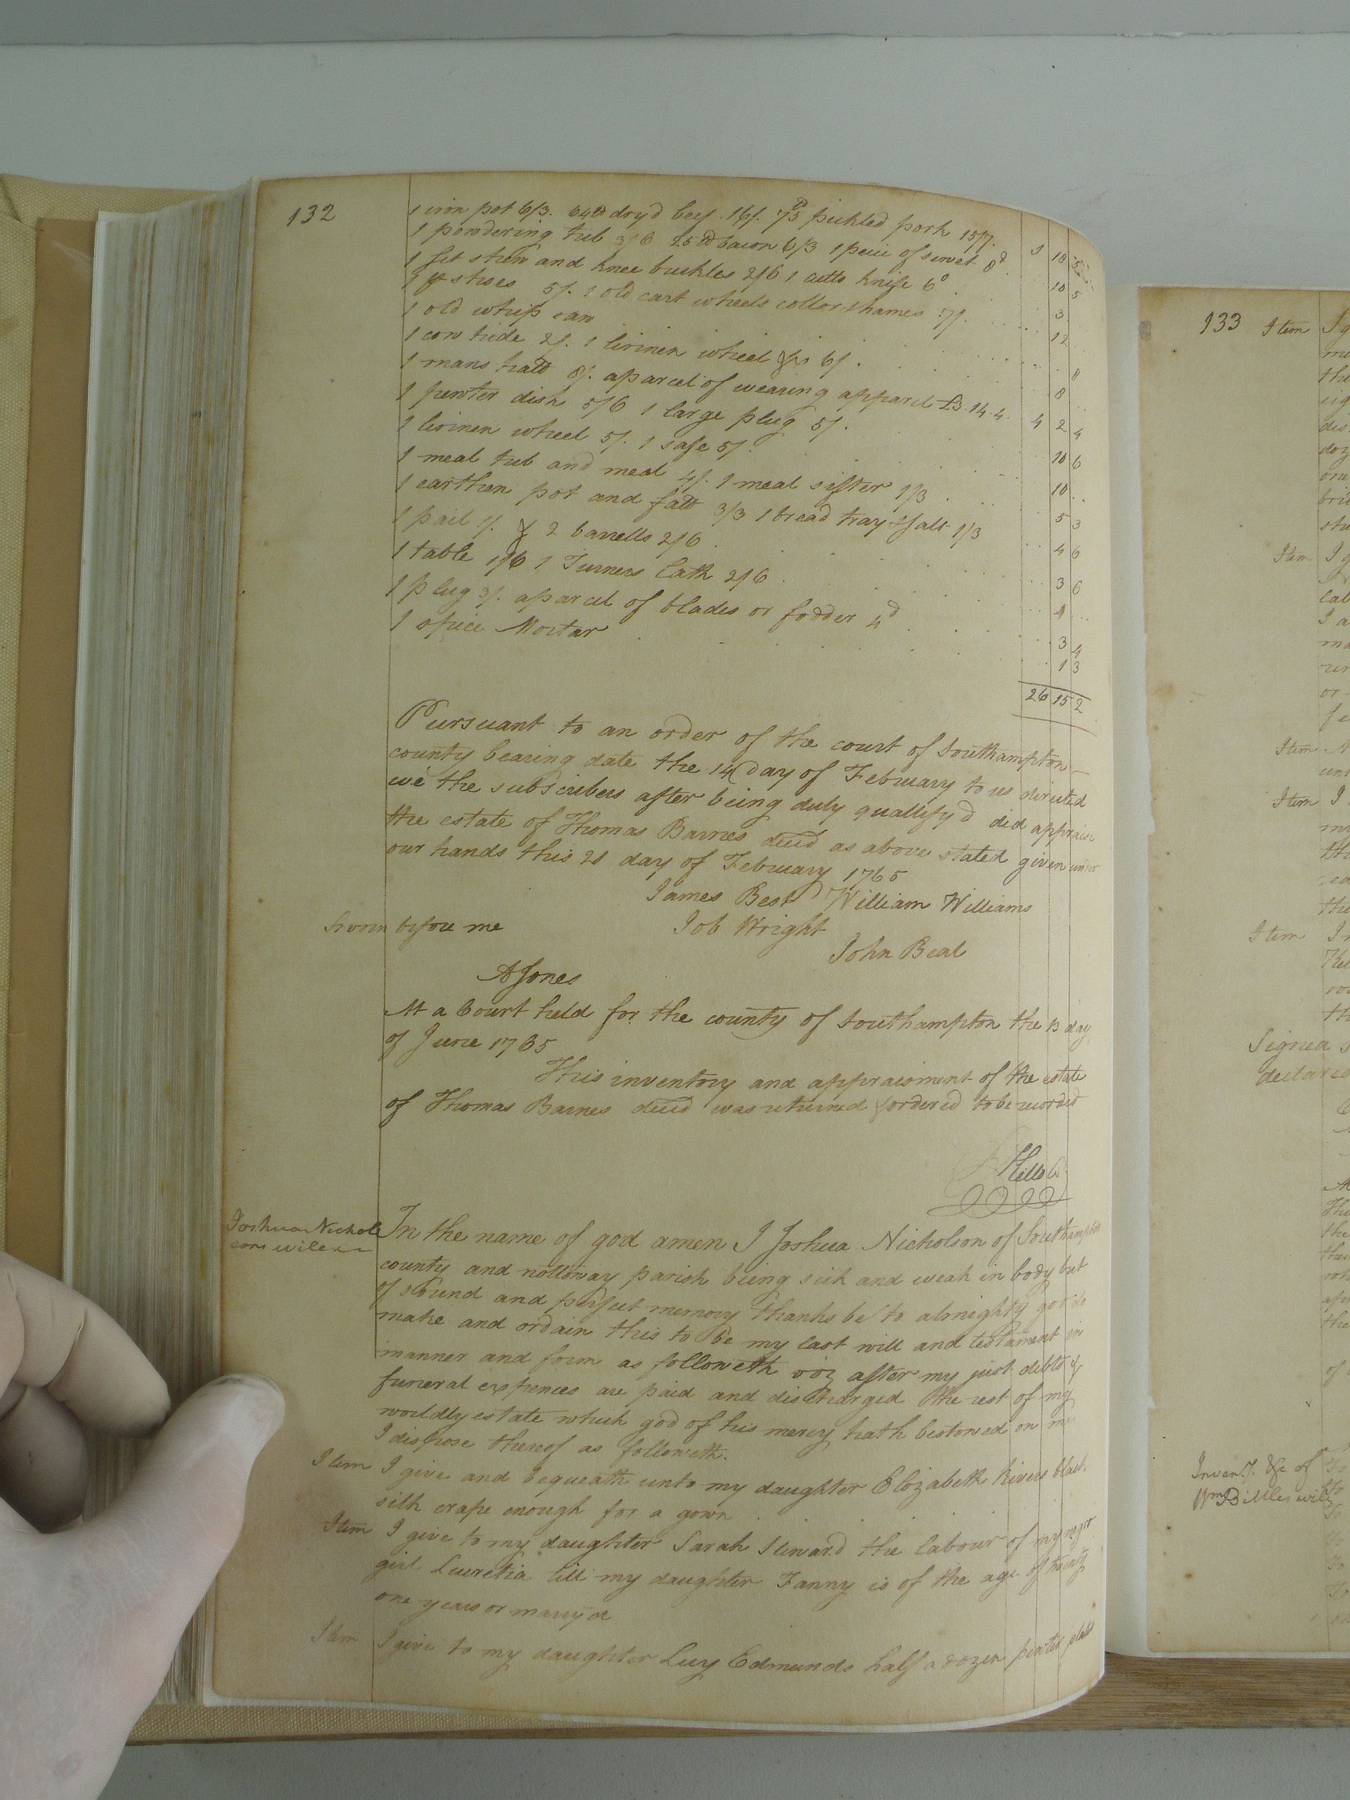 132
1 iron pot 6/3. 64 lb dry'd beef 16/. 75 lb pickled pork 15/7.
1 powdering tub 3/6 25 lb bacon 6/3 1 peice of 8d
1 set shew and knee buckles 2/6 1 cutto knife 6d
1 pr shoes 5/. 1 old cart wheels collor & hames 7/. 12
1 old whip saw
1 cow hide 2/. 1 linnen wheel &c 6/. 8
1 mans hatt 8/. a parcel of wearing apparel £3.14.4. 4 2 4
1 pewter dish 5/6 1 large plug 5/. 10 6
1 linnen wheel 5/. 1 safe 5/. 10
1 meal tub and meal 4/. 1 meal sifter 1/3 5 3
1 earthen pot and fatt 3/3 1 bread tray & salt 1/3 4 6
1 pail 1/. & 2 barrells 2/6 3 6
1 table 1/6 1 Turners Lath 2/6 4
1 plug 3/. a parcel of blades or fodder 4d 3 4
1 spice Mortar 1 3
26 15 2
Pursuant to an order of the court of Southampton
county bearing date the 14 day of February to us directed
we the subscribers after being duly quallify'd did appraise
the estate of Thomas Barnes decd as above stated given under
our hands this 21 day of February 1765
James Best William Williams
Sworn before me Job Wright
John Beal
A Jones
At a Court held for the county of Southampton the 13 day
of June 1765
This inventory and appraisment of the estate
of Thomas Barnes decd was returned & ordered to be recorded
Joshua Nichol
sons will
In the name of god amen I Joshua Nicholson of Southampton
county and nottoway parish being sick and weak in body but
of sound and perfect memory thanks be to almighty god do
make and ordain this to be my last will and testament in
manner and form as followeth viz after my just debts &
funeral expences are paid and discharged the rest of my
worldly estate which god of his mercy hath bestowed on me
I dispose thereof as followeth.
Item I give and bequeath unto my daughter Elizabeth Rivers black
silk crape enough for a gown
Item I give to my daughter Sarah Steward the labour of my negr
girl Lucretia till my daughter Fanny is of the age of twenty
one years or marry'd
Item I give to my daughter Lucy Edmunds half a dozen pewter plates
133
Item
Item
Item
Item
Item
Signed
declared
Inventy. &c of
Wm Bittles will